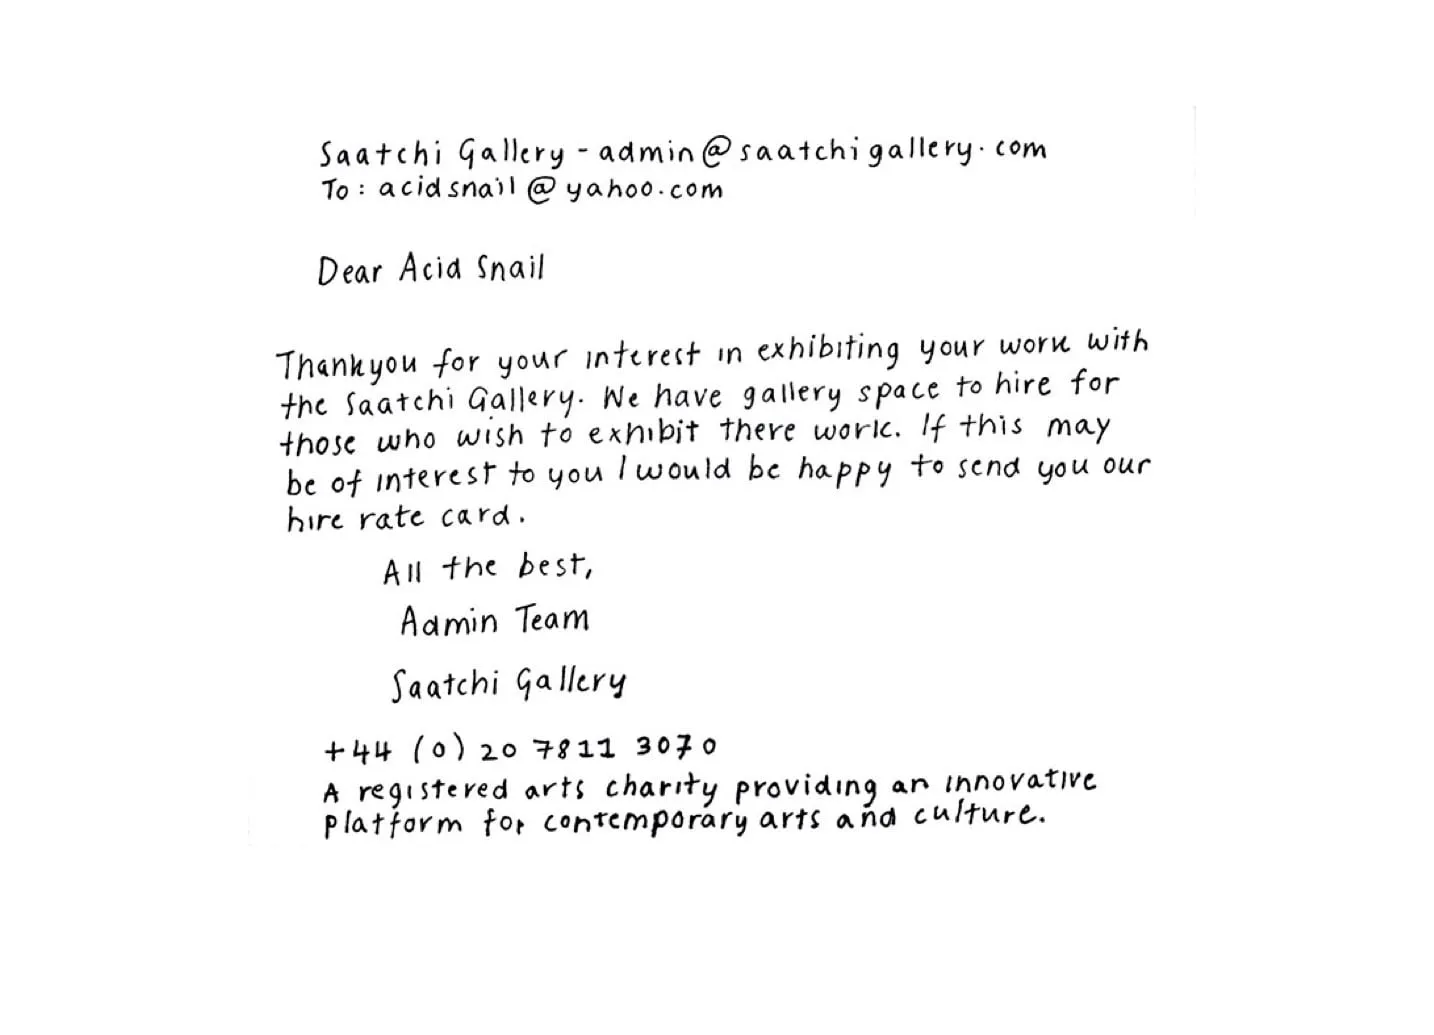 Saatchi Gallery - admin@saatchigallery.com
To: acidsnail@yahoo.com
Dear Acid Snail
Thankyou for your interest in exhibiting your work with
the Saatchi Gallery. We have gallery space to hire for
those who wish to exhibit there work. If this may
be of interest to you I would be happy to send you our
hire rate card.
All the best,
Admin Team
Saatchi Gallery
+44 (0) 20 7811 3070
A registered arts charity providing an innovative
platform for contemporary arts and culture.